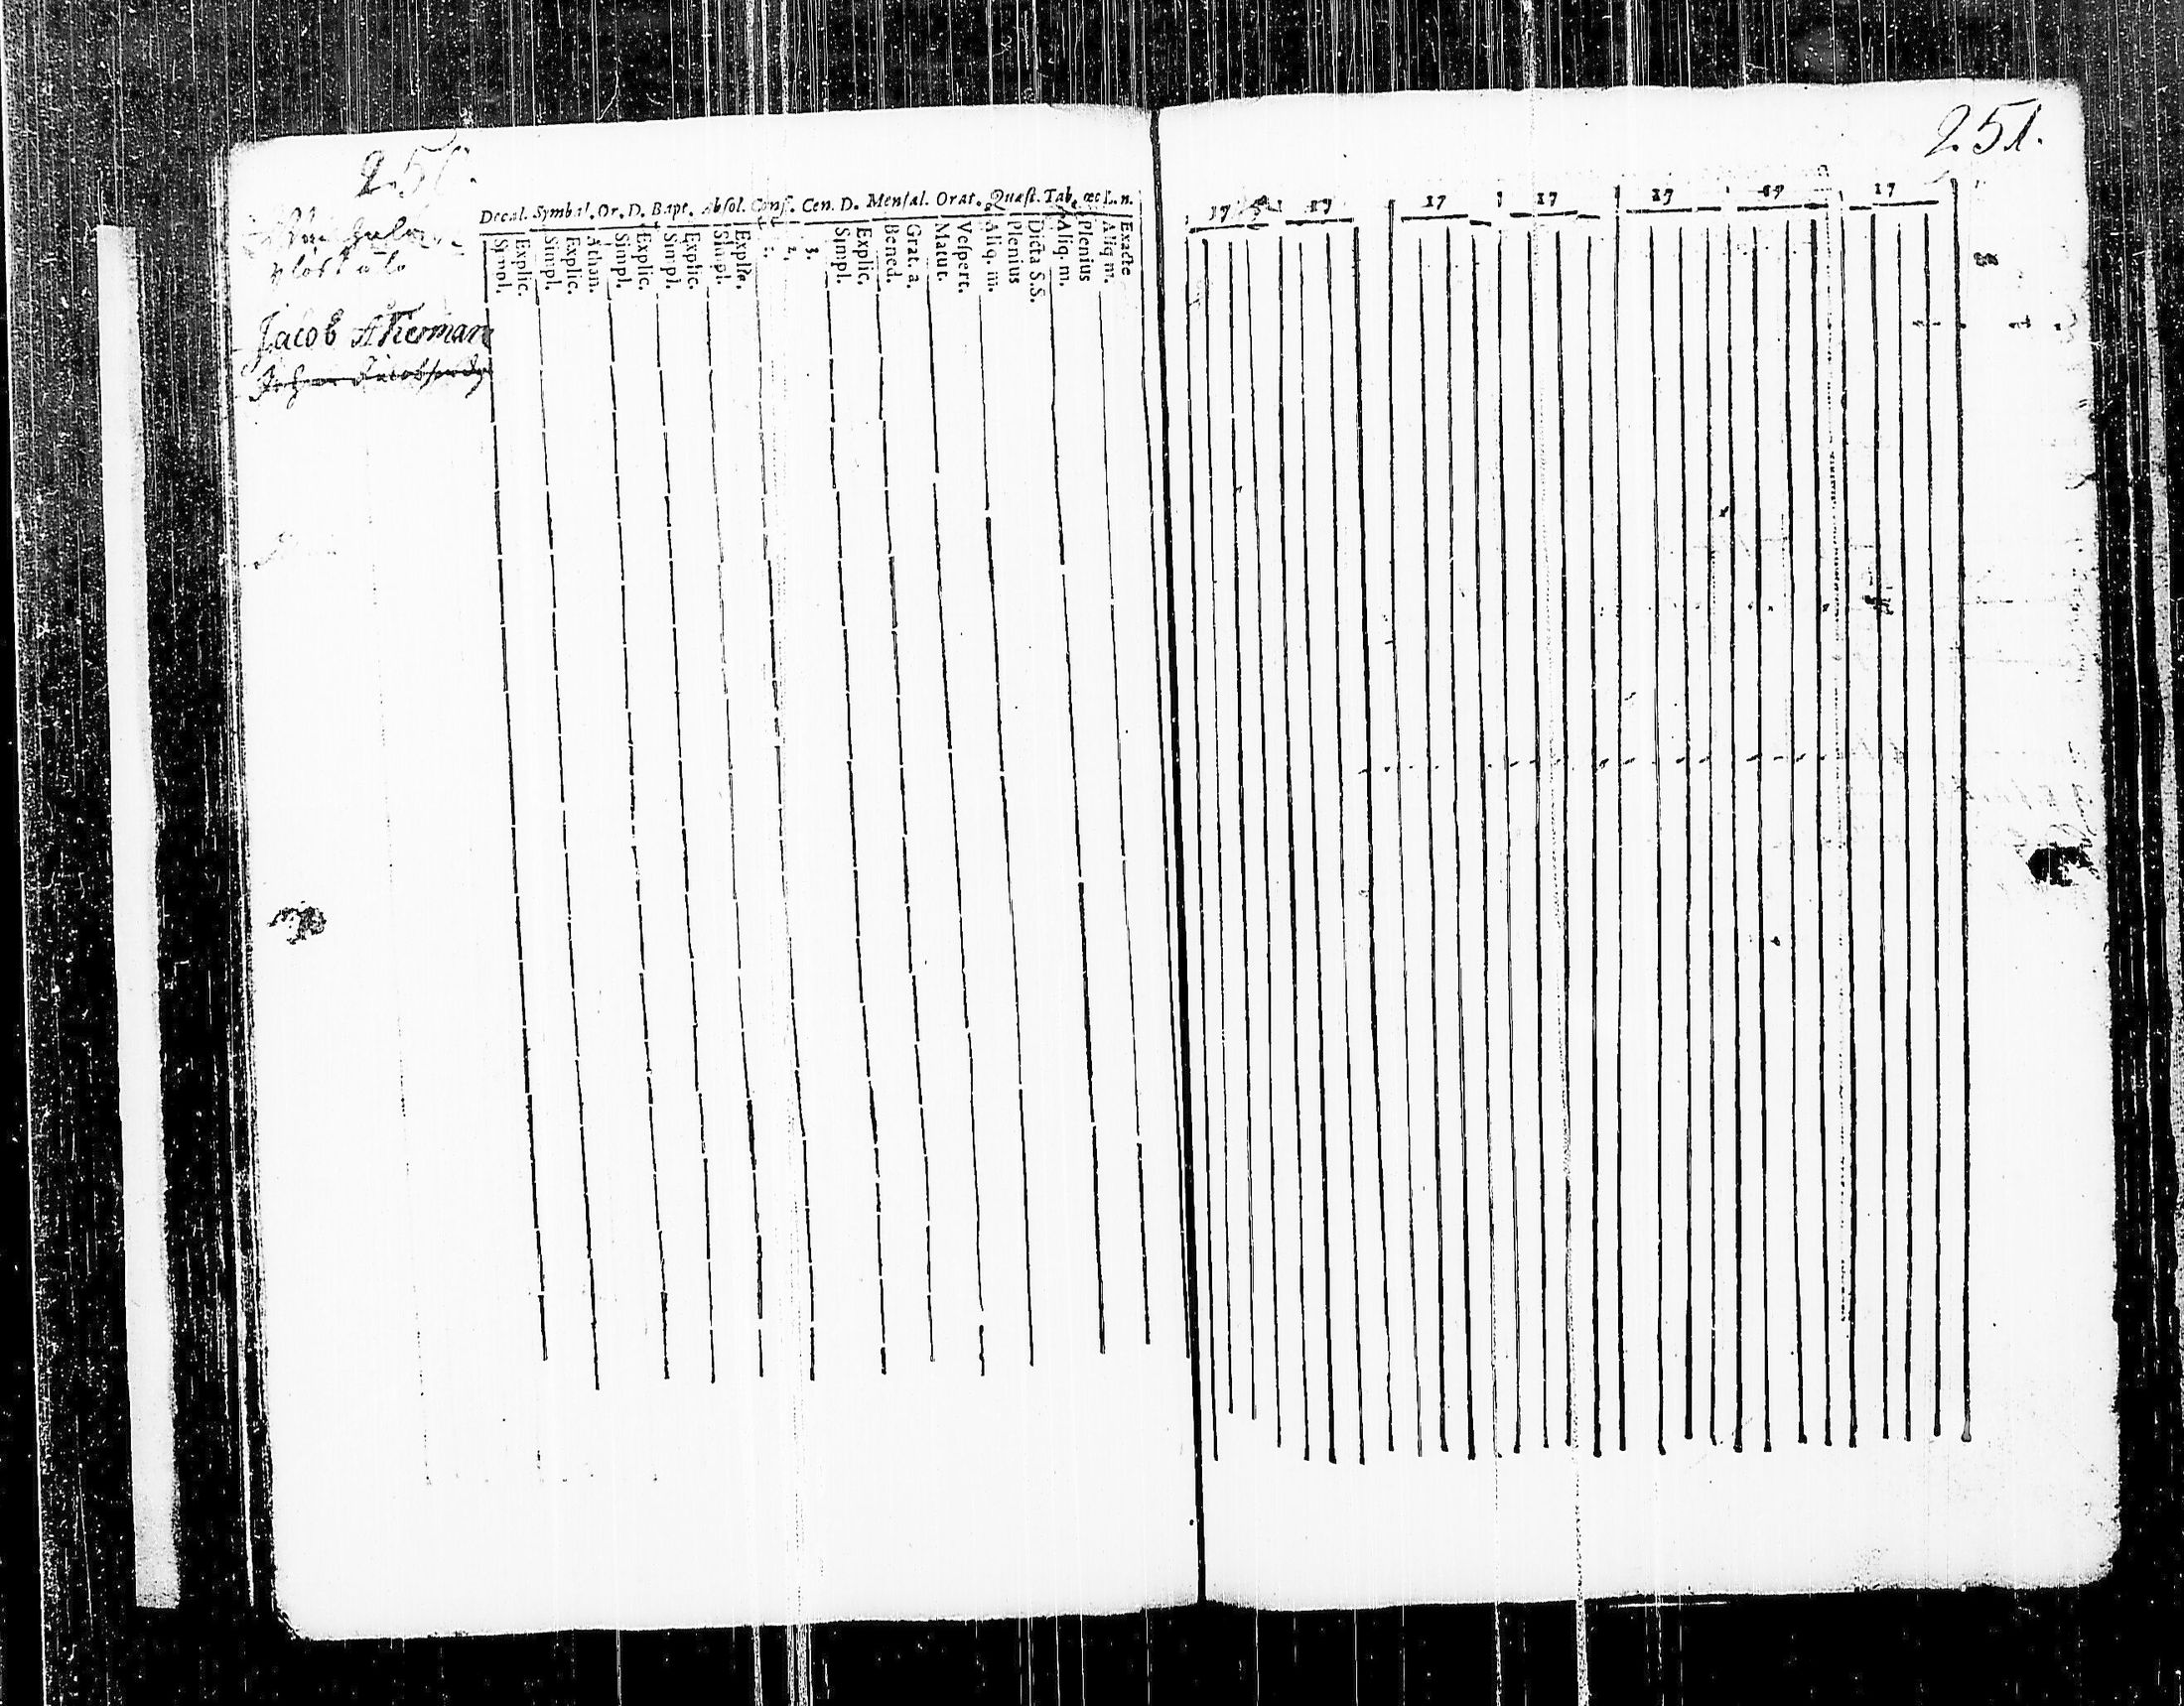 250.
Jacob Åkerman
Johan Jacobsson
Decal. Symbol. Or. D. Bapt. Absol. Conf. Cen. D. Mensal. Orat. Quæst. Tab. œc L. n.
Simpl.
Explic.
Simpl.
Explic.
Athan.
Simpl.
Explic.
Simpl.
Explic.
Simpl.
Explic.
1.
2.
3.
Simpl.
Explic.
Bened.
Grat. a.
Matut.
Vespert.
Aliq. m.
Plenius
Dicta S.S.
Aliq. m.
Plenius
Aliq m.
Exacte
251.
17 17 17 17 17 17 17